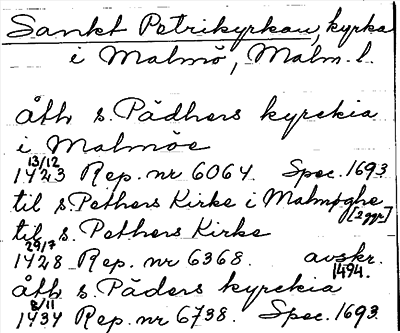 Sankt Petrikyrkan, kyrka
i Malmö, Malm. l.
åth s. Pædhers kyrekia
i Malmöe
13/12
1423 Rep. nr 6064. Spec. 1693
til s Pethers Kirke i Malmøghe
[2 ggr]
til s. Pethers Kirke
29/7
1428 Rep. nr 6368. avskr.
1494.
åth s. Päders kyrekia
8/11
1434 Rep. nr 6738. Spec. 1693